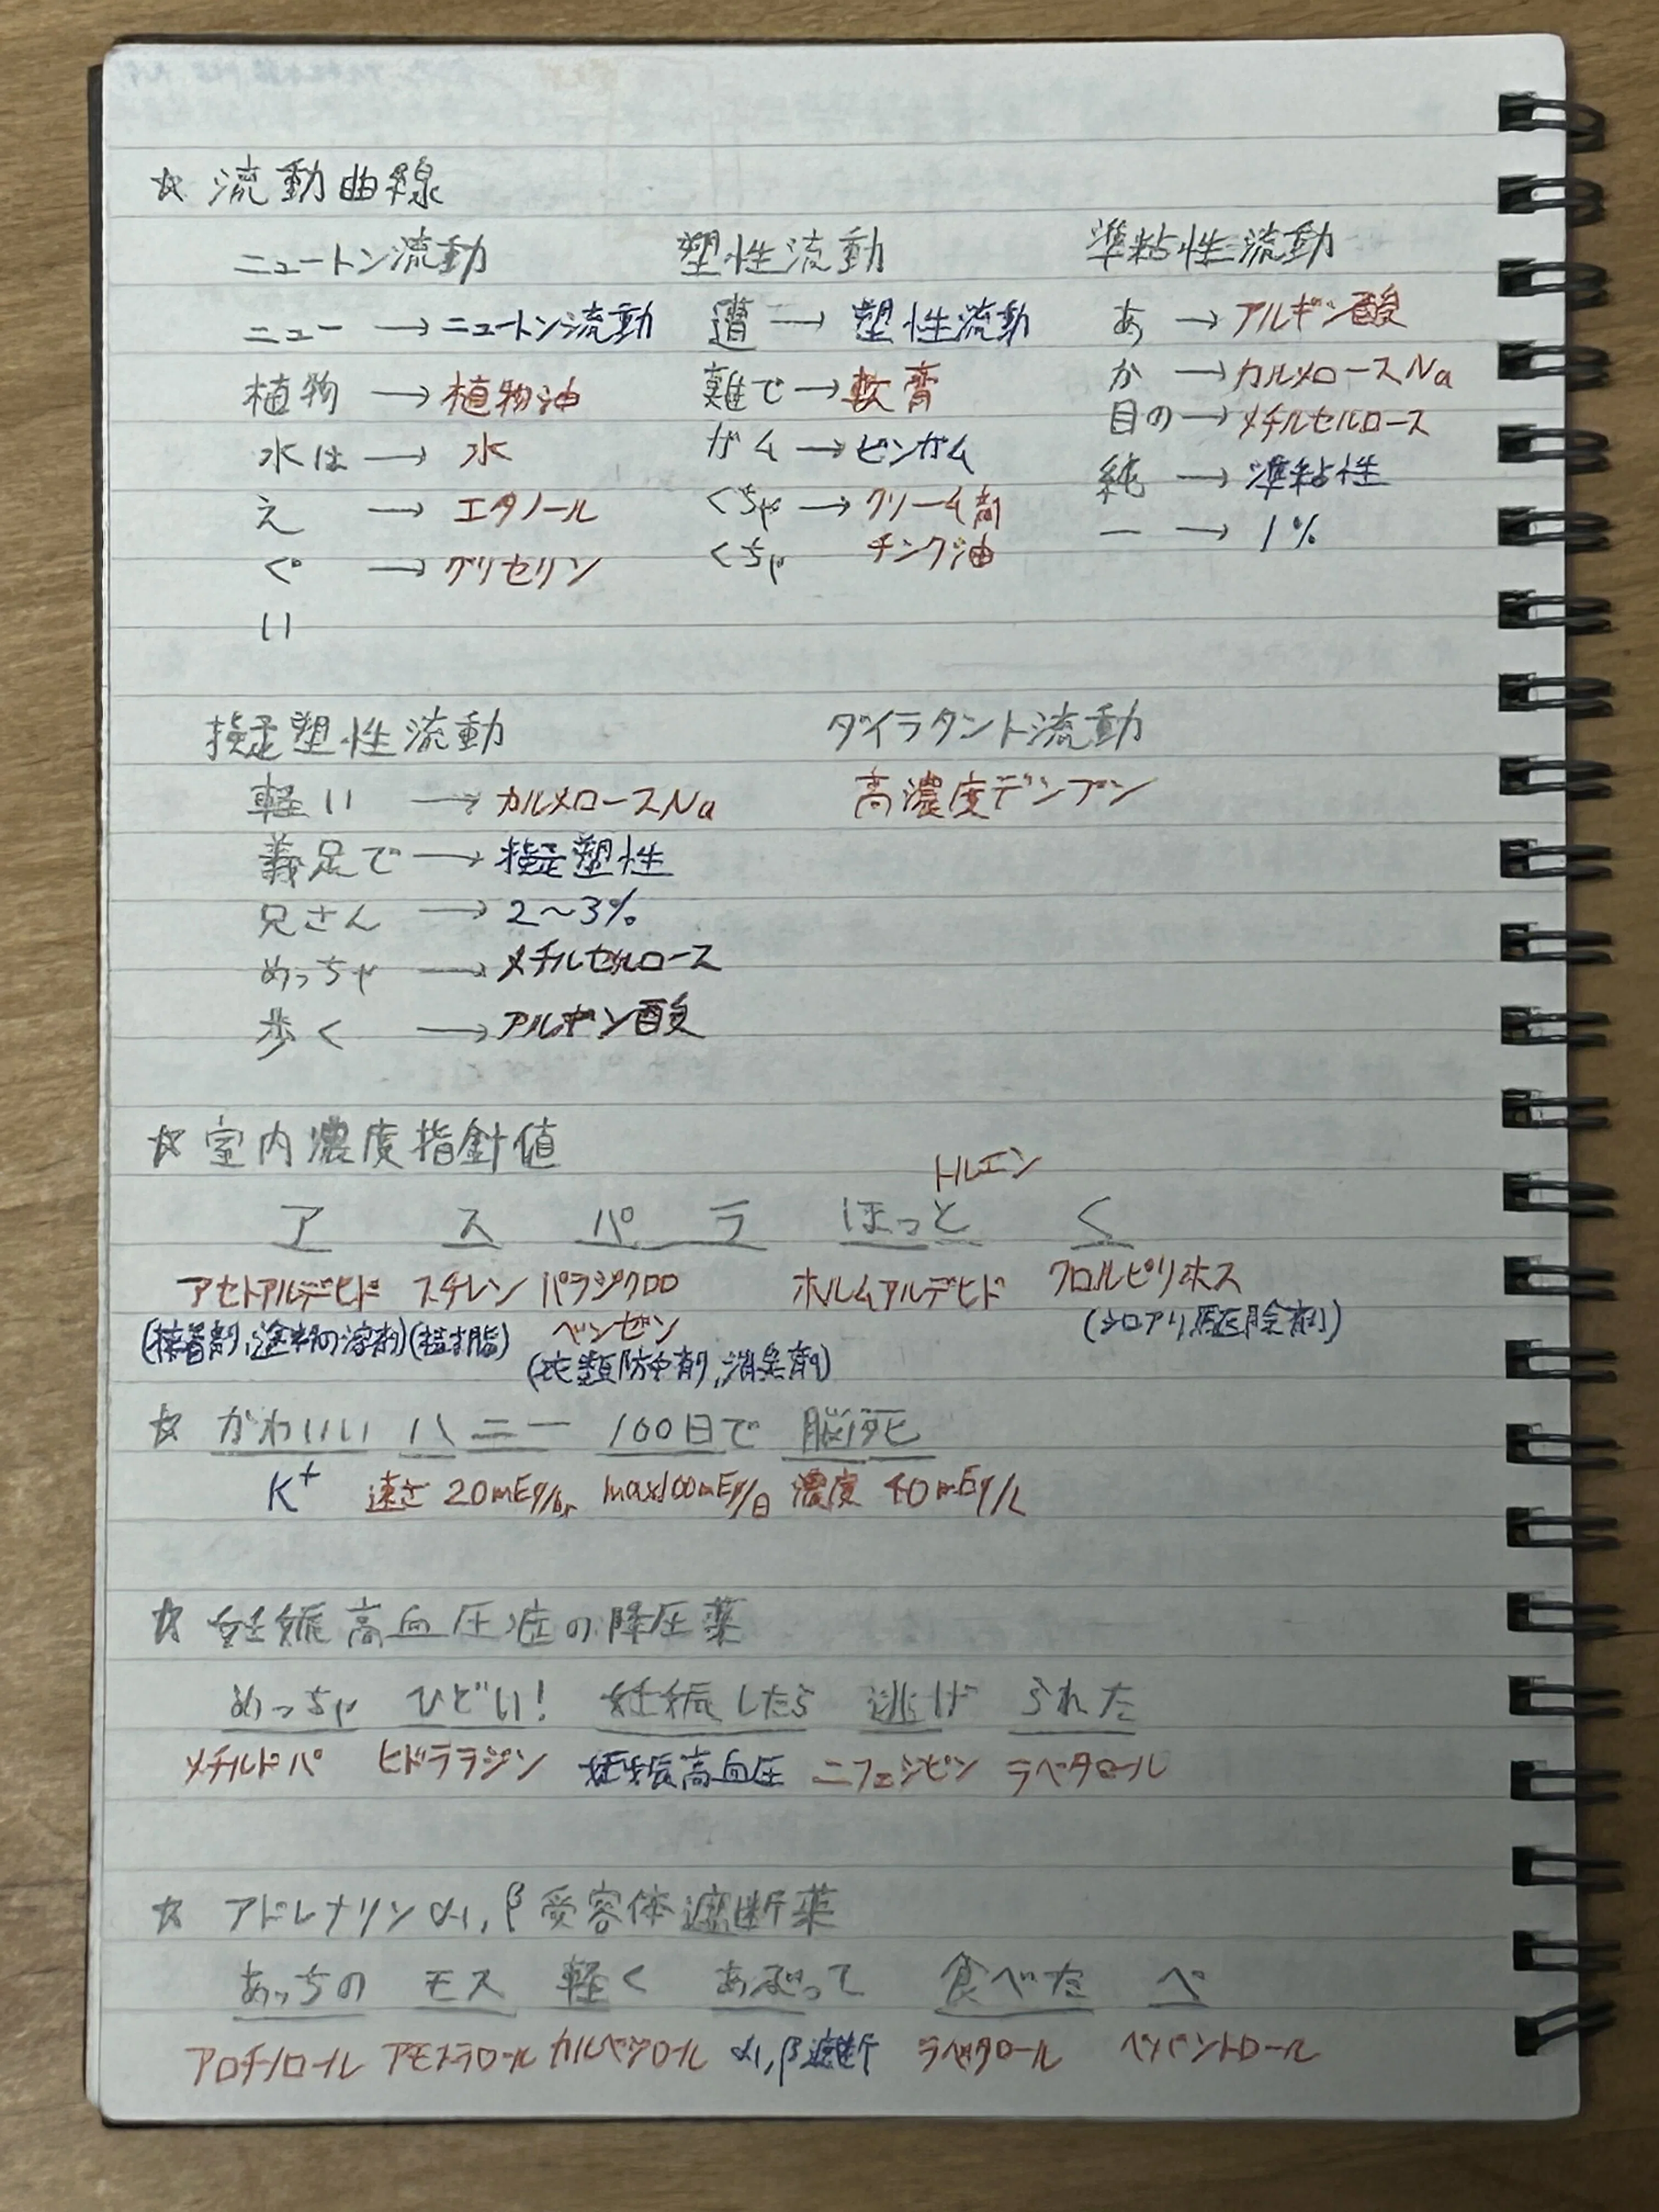 ☆ 流動曲線
ニュートン流動 塑性流動 準粘性流動
ニュー → ニュートン流動 遭 → 塑性流動 あ → アルギン酸
植物 → 植物油 難で → 軟膏 か → カルメロースNa
水は → 水 ガム → ビンガム 目の → メチルセルロース
え → エタノール くちゃ → クリーム剤 純 → 準粘性
ぐ → グリセリン くちゃ チンク油 一 → 1%
い
擬塑性流動 ダイラタント流動
軽い → カルメロースNa 高濃度デンプン
義足で → 擬塑性
兄さん → 2〜3%
めっちゃ → メチルセルロース
歩く → アルギン酸
☆ 室内濃度指針値
トルエン
ア ス パ ラ ほっと く
アセトアルデヒド スチレン パラジクロロ ホルムアルデヒド クロルピリホス
(接着剤,塗料の溶剤) (樹脂) ベンゼン (シロアリ駆除剤)
(衣類防虫剤,消臭剤)
☆ かわいい ハニー 100日で 脳死
K+ 速さ 20mEq/hr max100mEq/日 濃度 40mEq/L
☆ 妊娠高血圧症の降圧薬
めっちゃ ひどい! 妊娠したら 逃げ られた
メチルドパ ヒドララジン 妊娠高血圧 ニフェジピン ラベタロール
☆ アドレナリンα1,β受容体遮断薬
あっちの モス 軽く あるって 食べた ベ
アロチノロール アモスラロール カルベジロール α1,β遮断 ラベタロール ベバントロール